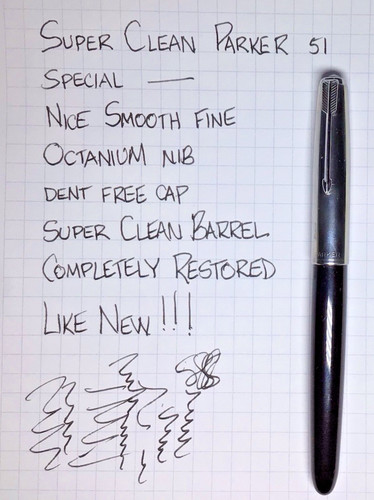 SUPER CLEAN PARKER 51
SPECIAL —
NICE SMOOTH FINE
OCTANIUM NIB
DENT FREE CAP
SUPER CLEAN BARREL
COMPLETELY RESTORED
LIKE NEW!!!